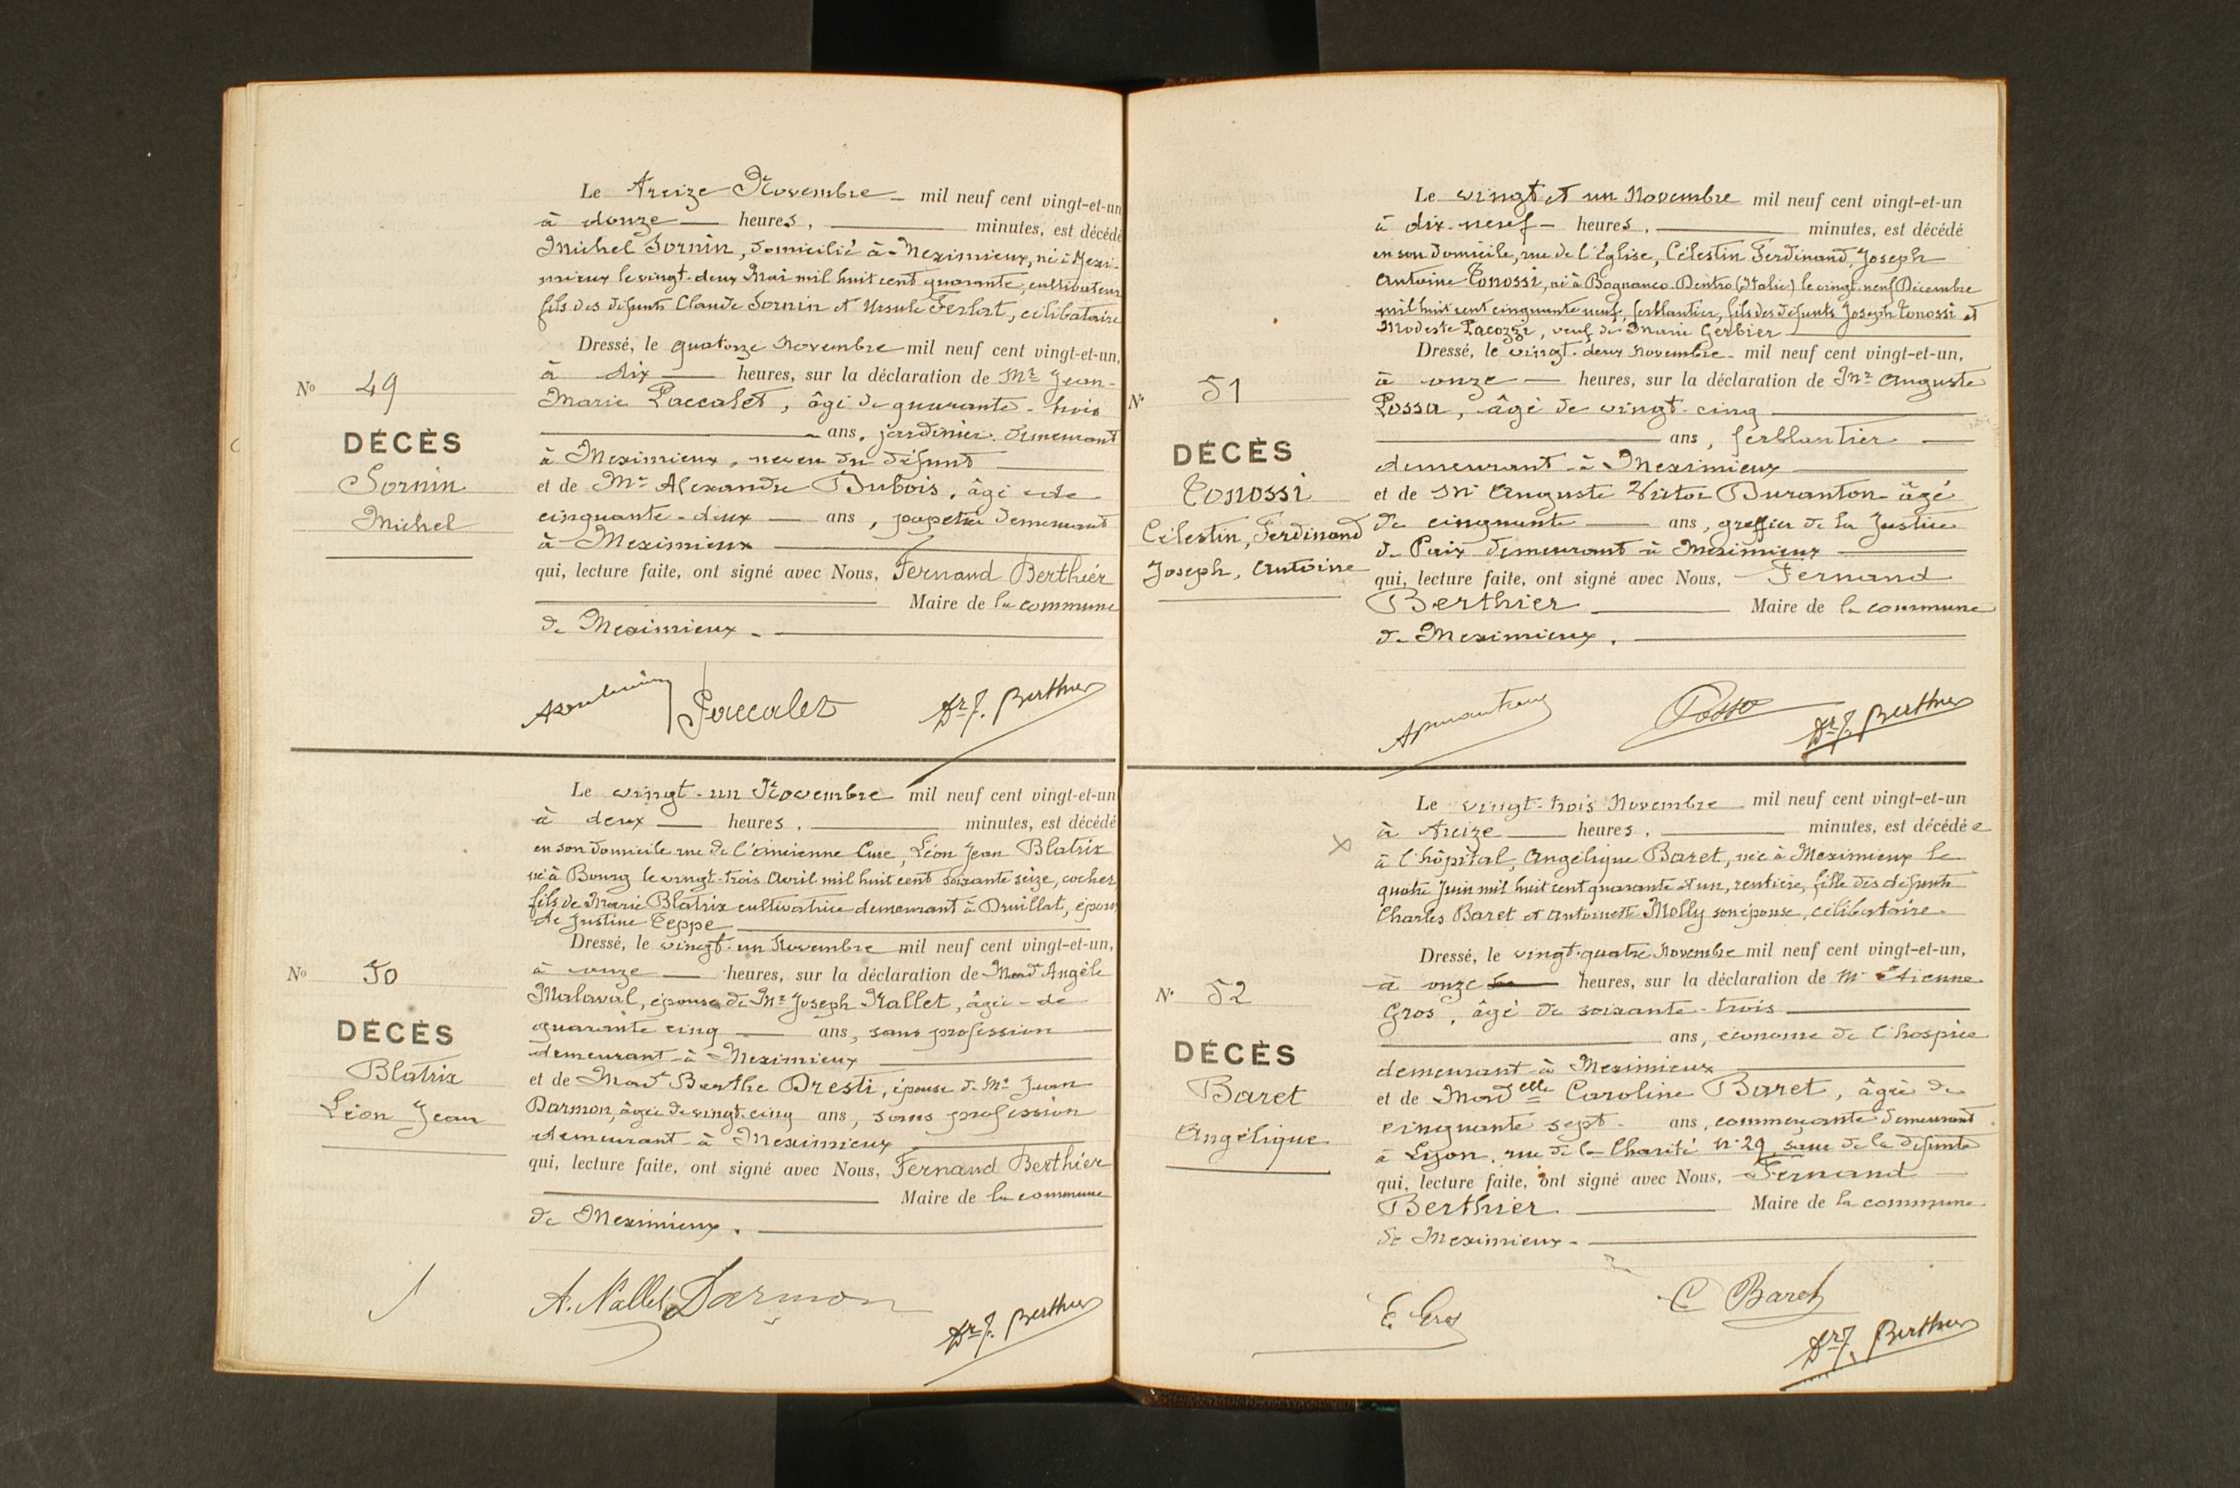 Le treize Novembre mil neuf cent vingt-et-un
à douze heures, minutes, est décédé
Michel Sornin, domicilié à Meximieux, né à Mexi-
mieux le vingt-deux Mai mil huit cent quarante, cultivateur
fils des défunts Claude Sornin et Ursule Ferlat, célibataire
Dressé, le quatorze Novembre mil neuf cent vingt-et-un,
à dix heures, sur la déclaration de Mr Jean-
Nº 49
Marie Paccalet, âgé de quarante-trois
ans, jardinier demeurant
DÉCÈS
à Meximieux, neveu du défunt
Sornin
et de Mr Alexandre Dubois, âgé de
Michel
cinquante-deux ans, papetier demeurant
à Meximieux
qui, lecture faite, ont signé avec Nous, Fernand Berthier
Maire de la commune
de Meximieux.
Paccalet
Dr F. Berthier
Le vingt-un Novembre mil neuf cent vingt-et-un
à deux heures, minutes, est décédé
en son domicile rue de l'ancienne Cure, Léon Jean Blatrix
né à Bourg le vingt-trois Avril mil huit cent soixante seize, cocher
fils de Marie Blatrix cultivatrice demeurant à Druillat, époux
de Justine Teppe
Dressé, le vingt-un Novembre mil neuf cent vingt-et-un,
Nº 50
à onze heures, sur la déclaration de Mad Angèle
Malaval, épouse de Mr Joseph Nallet, âgée de
quarante cinq ans, sans profession
DÉCÈS
demeurant à Meximieux
Blatrix
et de Mad Berthe Dresti, épouse de Mr Jean
Léon Jean
Darmon, âgée de vingt-cinq ans, sans profession
demeurant à Meximieux
qui, lecture faite, ont signé avec Nous, Fernand Berthier
Maire de la commune
de Meximieux.
A. Nallet Darmon
Dr F. Berthier
Le vingt et un Novembre mil neuf cent vingt-et-un
à dix-neuf heures, minutes, est décédé
en son domicile, rue de l'Eglise, Célestin Ferdinand, Joseph
Antoine Tonossi, né à Bognanco-Dentro (Italie) le vingt-neuf Décembre
mil huit cent cinquante neuf, ferblantier, fils des défunts Joseph Tonossi et
Modeste Pacozzi, veuf de Marie Gerbier
Dressé, le vingt-deux Novembre mil neuf cent vingt-et-un,
à onze heures, sur la déclaration de Mr Auguste
Nº 51
Possa, âgé de vingt-cinq
ans, ferblantier
DÉCÈS
demeurant à Meximieux
Tonossi
et de Mr Auguste Victor Duranton âgé
Célestin, Ferdinand
de cinquante ans, greffier de la Justice
de Paix demeurant à Meximieux
Joseph, Antoine
qui, lecture faite, ont signé avec Nous, Fernand
Berthier Maire de la commune
de Meximieux.
Possa
Dr F. Berthier
Le vingt-trois Novembre mil neuf cent vingt-et-un
à treize heures, minutes, est décédée
à l'hôpital, Angélique Baret, née à Meximieux le
quatre Juin mil huit cent quarante et un, rentière, fille des défunts
Charles Baret et Antoinette Molly son épouse, célibataire.
Dressé, le vingt-quatre Novembre mil neuf cent vingt-et-un,
Nº 52
à onze heures, sur la déclaration de Mr Etienne
Gros, âgé de soixante-trois
ans, économe de l'hospice
DÉCÈS
demeurant à Meximieux
Baret
et de Madelle Caroline Baret, âgée de
cinquante sept ans, commerçante demeurant
Angélique
à Lyon, rue de la Charité Nº 29, sœur de la défunte
qui, lecture faite, ont signé avec Nous, Fernand
Berthier Maire de la commune
de Meximieux.
E. Gros
C Baret
Dr F. Berthier